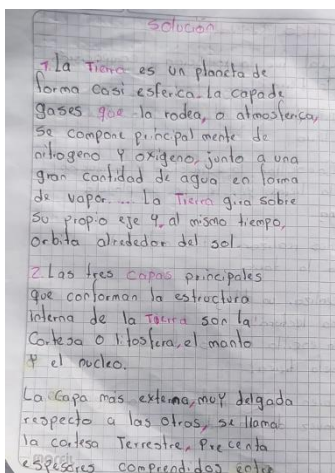 Solución
1. La Tierra es un planeta de
forma casi esferica. La capa de
gases que la rodea, o atmosferica,
se compone principalmente de
nitrogeno y oxigeno, junto a una
gran cantidad de agua en forma
de vapor... La Tierra gira sobre
su propio eje y, al mismo tiempo,
orbita alrededor del sol.
2. Las tres capas principales
que conforman la estructura
interna de la Tierra son la
Cortesa o litosfera, el manto
y el nucleo.
La Capa más externa, muy delgada
respecto a las otros, se llama
la cortesa Terrestre, Precenta
espesores comprendidos entre